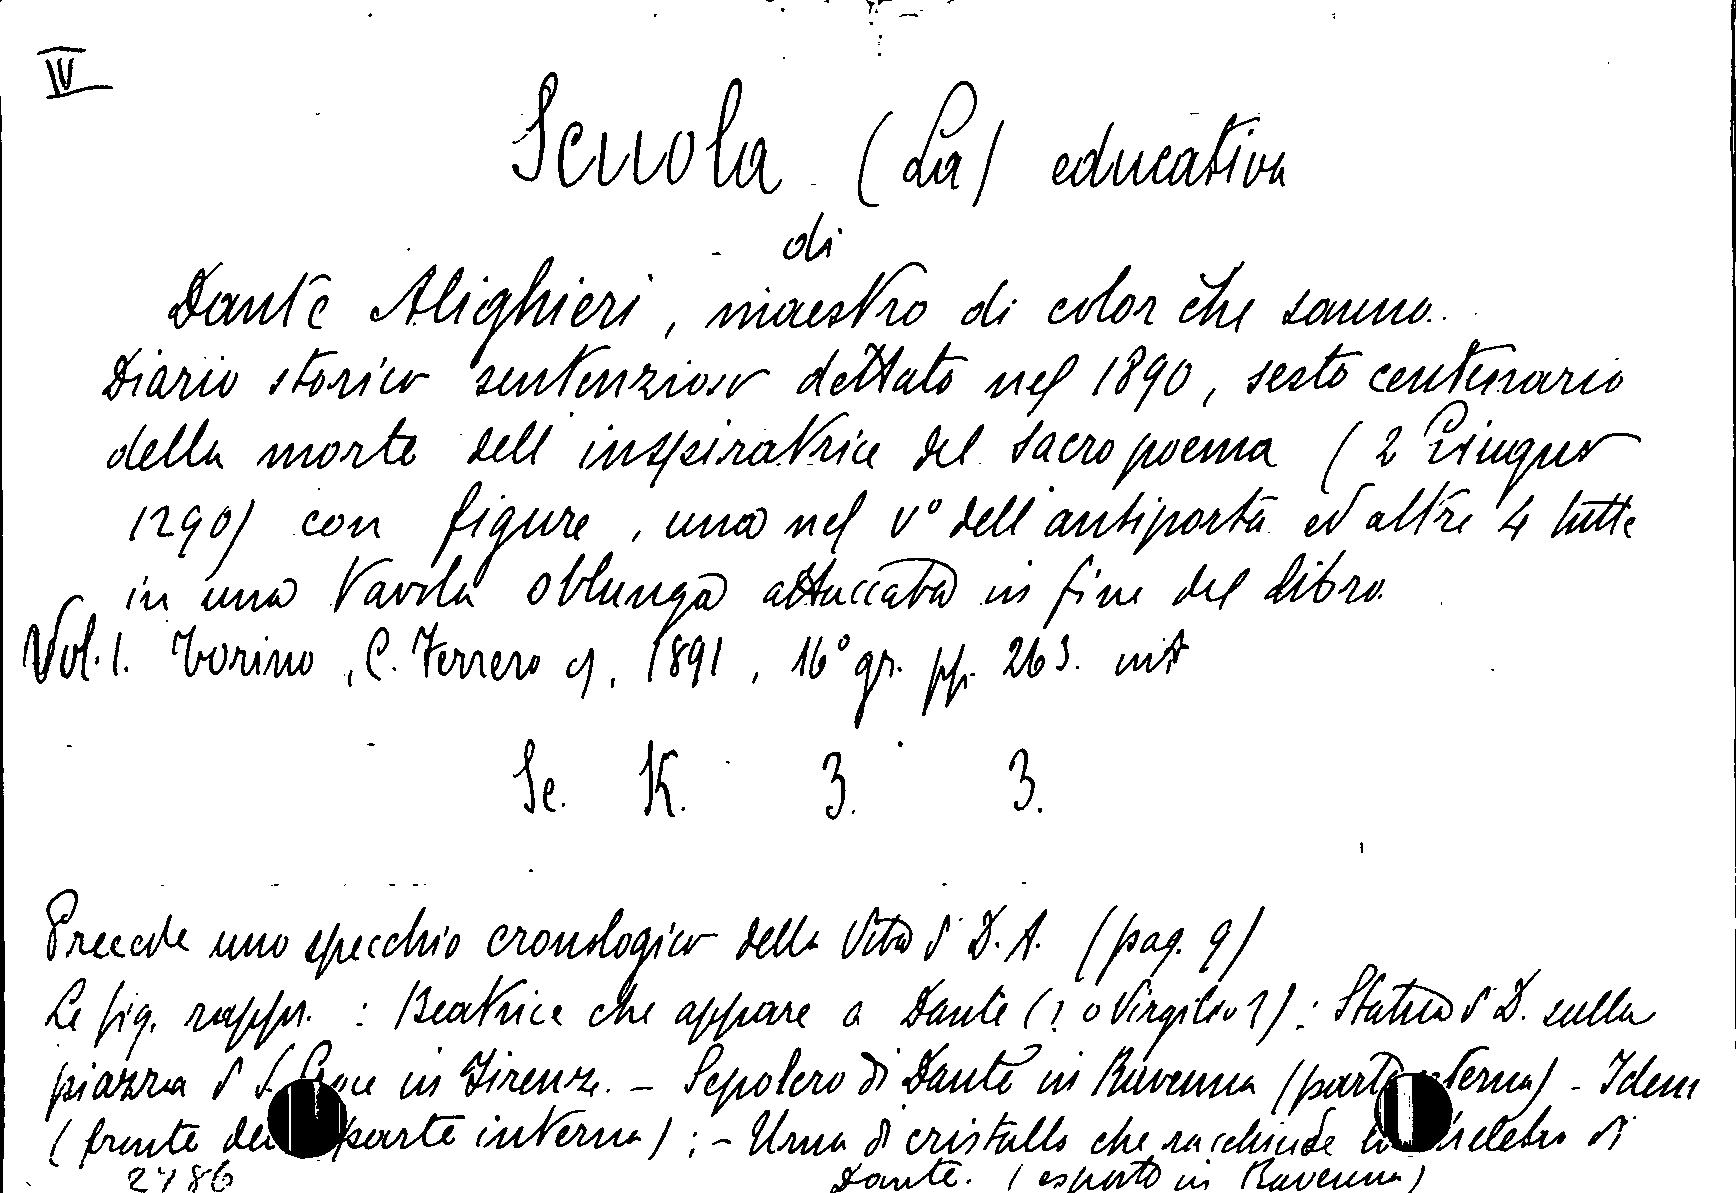 IV
Scuola (La) educativa
di
Dante Alighieri, maestro di color che sanno.
Diario storico sentenzioso dettato nel 1890, sesto centenario
della morte dell inspiratrice del sacro poema (2 Giugno
1290) con figure, una nel v° dell'antiporta ed altre 4 tutte
in una tavola oblunga attaccata in fine del libro.
Vol. 1. Torino, C. Ferrero, 1891, 16° gr. pp. 263.
Se. K. 3. 3.
Precede uno specchio cronologico della Vita d D. A. (pag. 9)
Le fig. rappr. : Beatrice che appare a Dante (? o Virgilio?) : Statua d D. sulla
piazza d S. Croce in Firenze. - Sepolcro di Dante in Ravenna (parte esterna) - Idem
(fronte della parte interna) ; - Urna di cristallo che racchiude lo scheletro di
2786 Dante. (esposto in Ravenna)